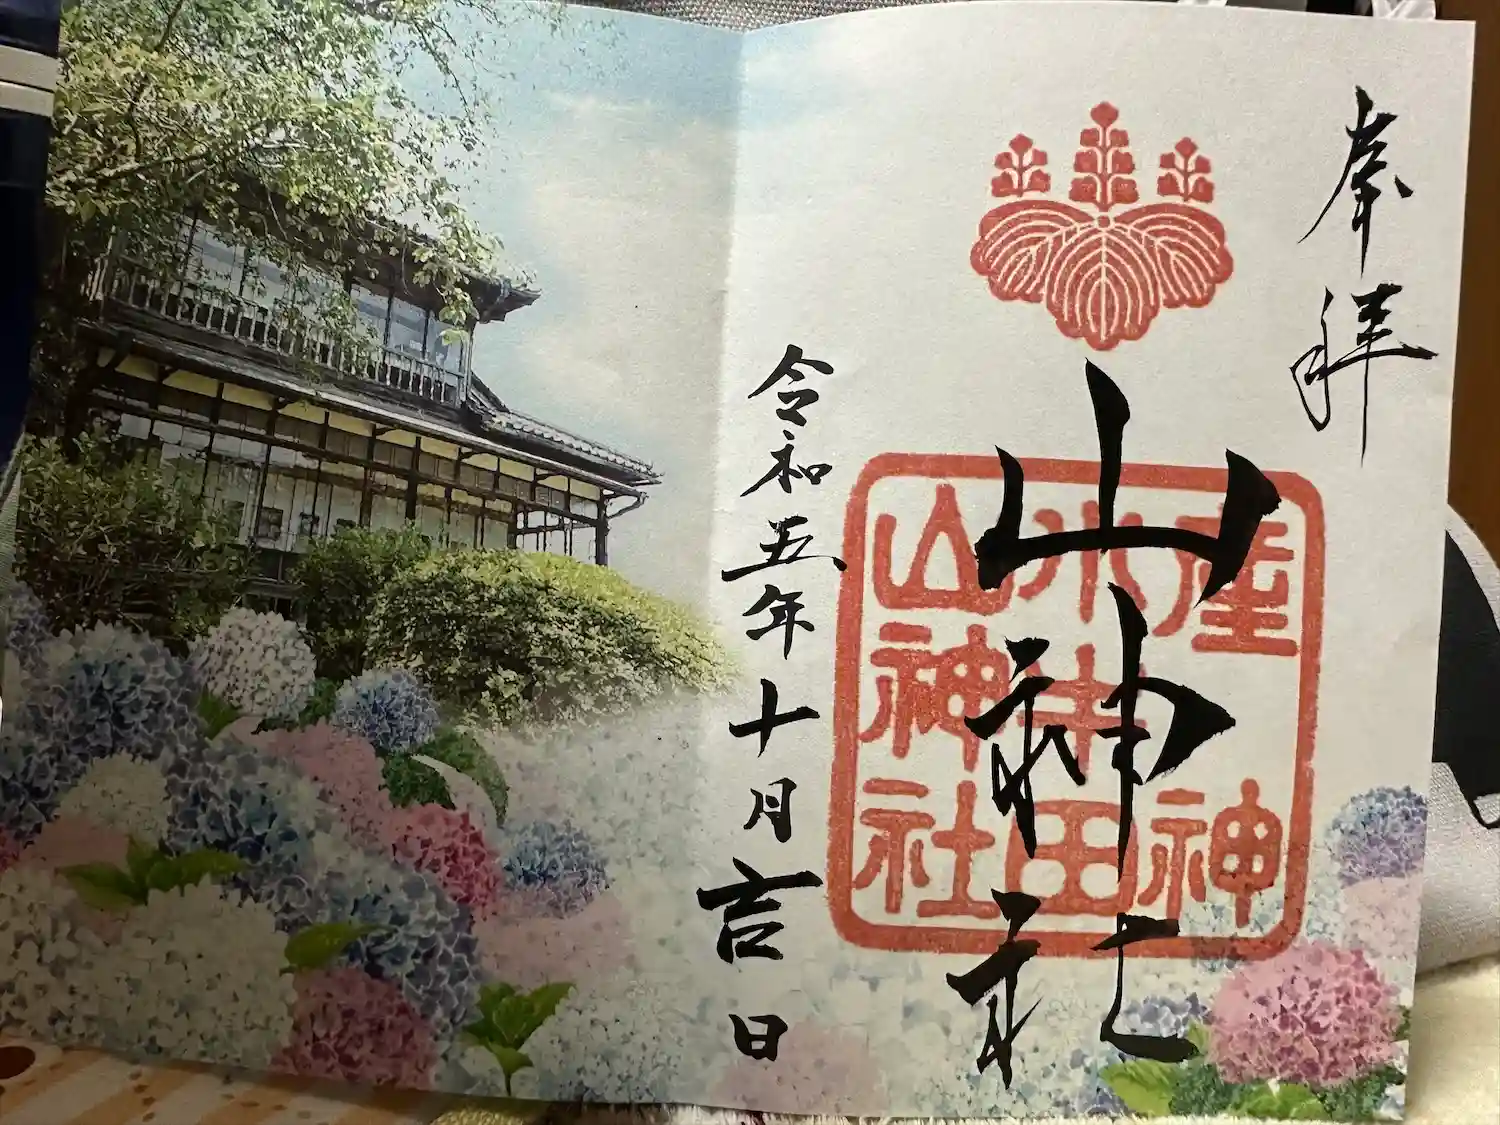 奉拝
山神社
産神
小牛田
山神社
令和五年十月吉日